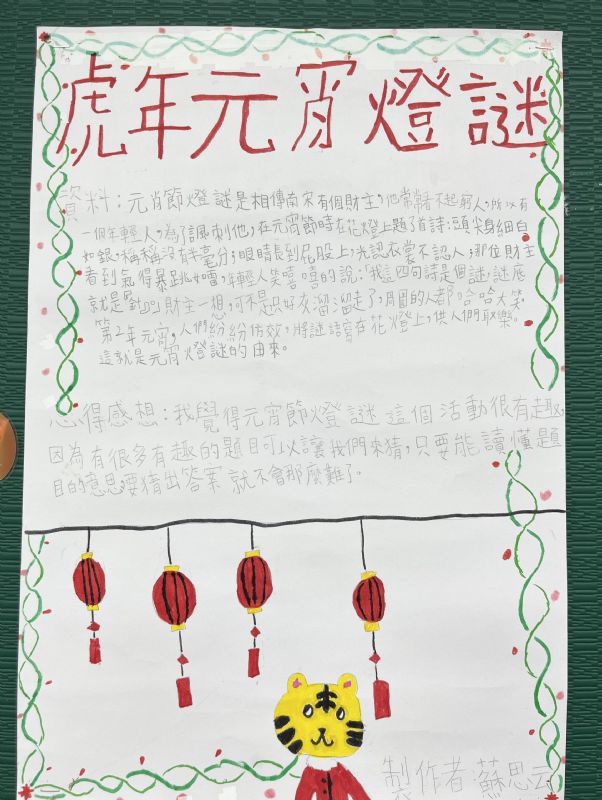 虎年元宵燈謎
資料：元宵節燈謎是相傳南宋有個財主，他常瞧不起窮人，所以有
一個年輕人，為了諷刺他，在元宵節時在花燈上題了首詩：頭尖身細白
如銀，稱稱沒有半毫分；眼睛長到屁股上，光認衣裳不認人，那位財主
看到氣得暴跳如雷，年輕人笑嘻嘻的說：「我這四句詩是個謎，謎底
就是 財主一想，可不是只好灰溜溜走了，周圍的人都哈哈大笑。
第2年元宵，人們紛紛仿效，將謎語寫在花燈上，供人們取樂。
這就是元宵燈謎的由來。
心得感想：我覺得元宵節燈謎這個活動很有趣，
因為有很多有趣的題目可以讓我們來猜，只要能讀懂題
目的意思，要猜出答案就不會那麼難了。
製作者：蘇思